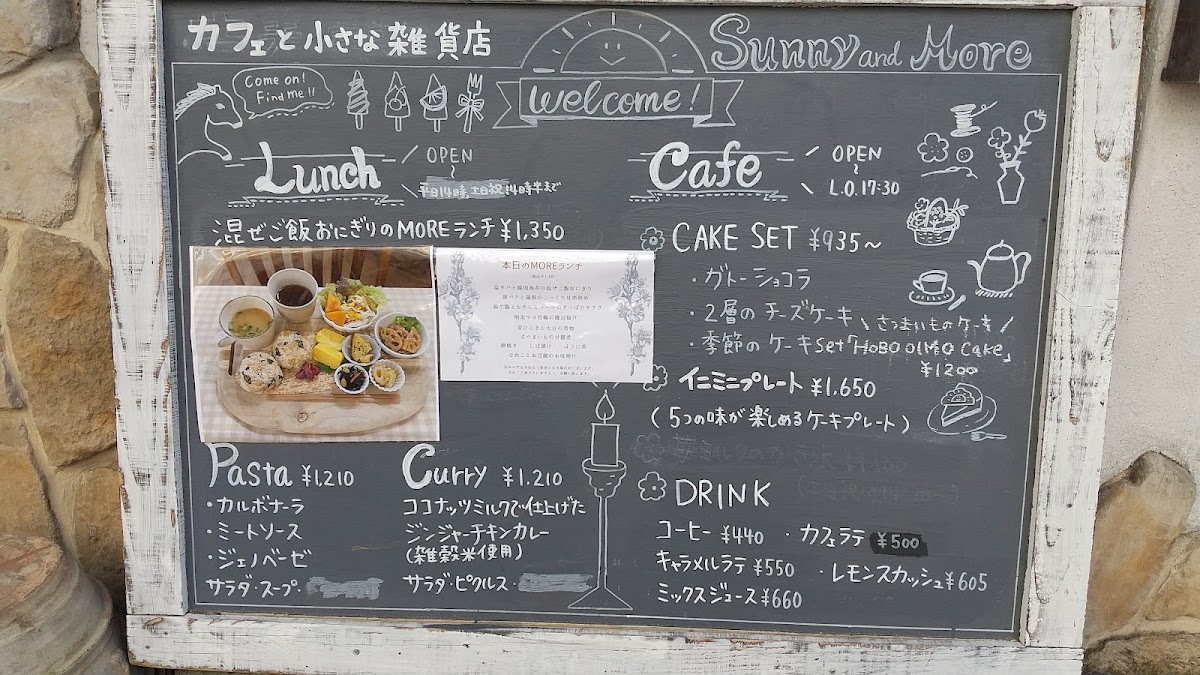 カフェと小さな雑貨店
Sunny and More
Come on!
Find me!!
welcome!
Lunch
OPEN
~
平日14時,土日祝14時半まで
混ぜご飯おにぎりのMOREランチ ¥1,350
本日のMOREランチ
Pasta ¥1,210
・カルボナーラ
・ミートソース
・ジェノベーゼ
サラダ・スープ・
Curry ¥1,210
ココナッツミルクで仕上げた
ジンジャーチキンカレー
(雑穀米使用)
サラダ・ピクルス・
Cafe
OPEN
~
L.O.17:30
CAKE SET ¥935~
・ガトーショコラ
・2層のチーズケーキ
さつまいものケーキ
・季節のケーキset「HOBO OIMO Cake」
¥1200
イニミニプレート ¥1,650
(5つの味が楽しめるケーキプレート)
DRINK
コーヒー ¥440 ・カフェラテ ¥500
キャラメルラテ ¥550 ・レモンスカッシュ ¥605
ミックスジュース ¥660